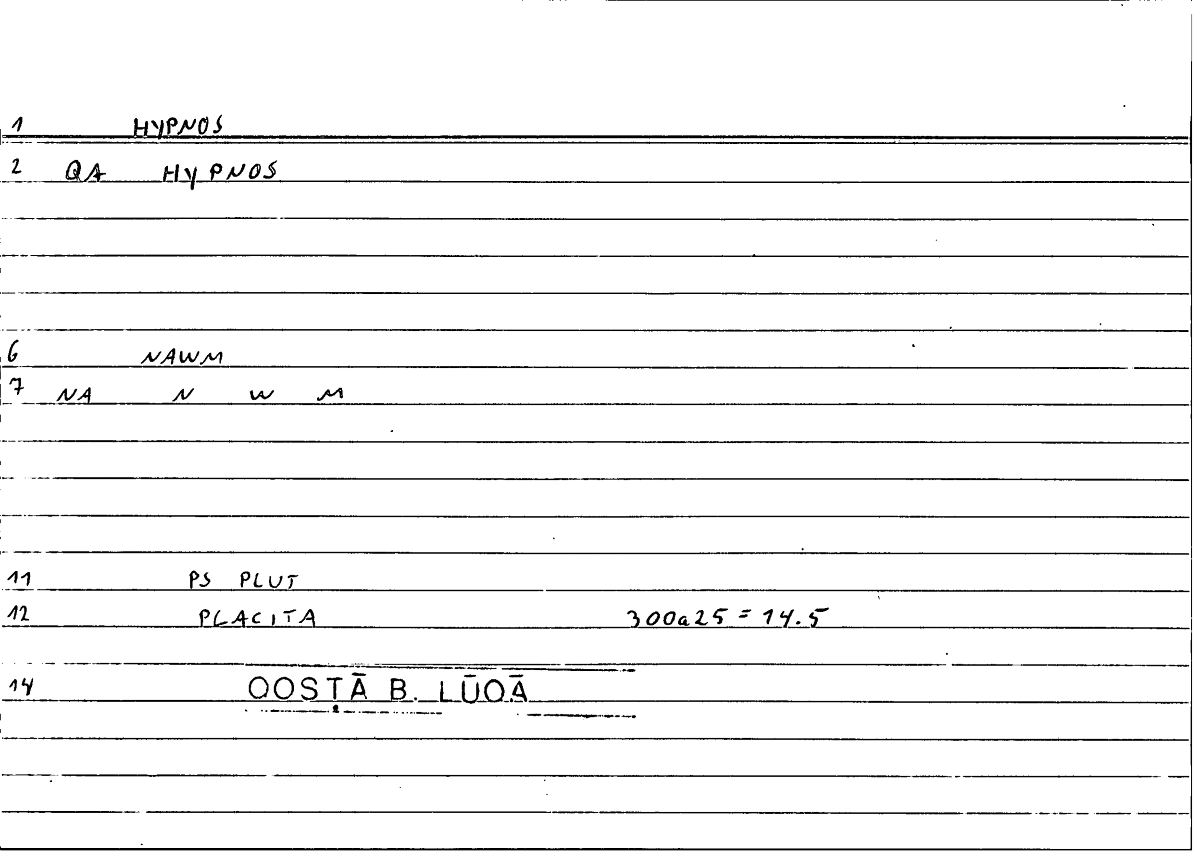 1 HYPNOS
2 QA HYPNOS
6 NAWM
7 NA N W M
11 PS PLUT
12 PLACITA 300a25 = 14.5
14 QOSṬĀ B. LŪQĀ